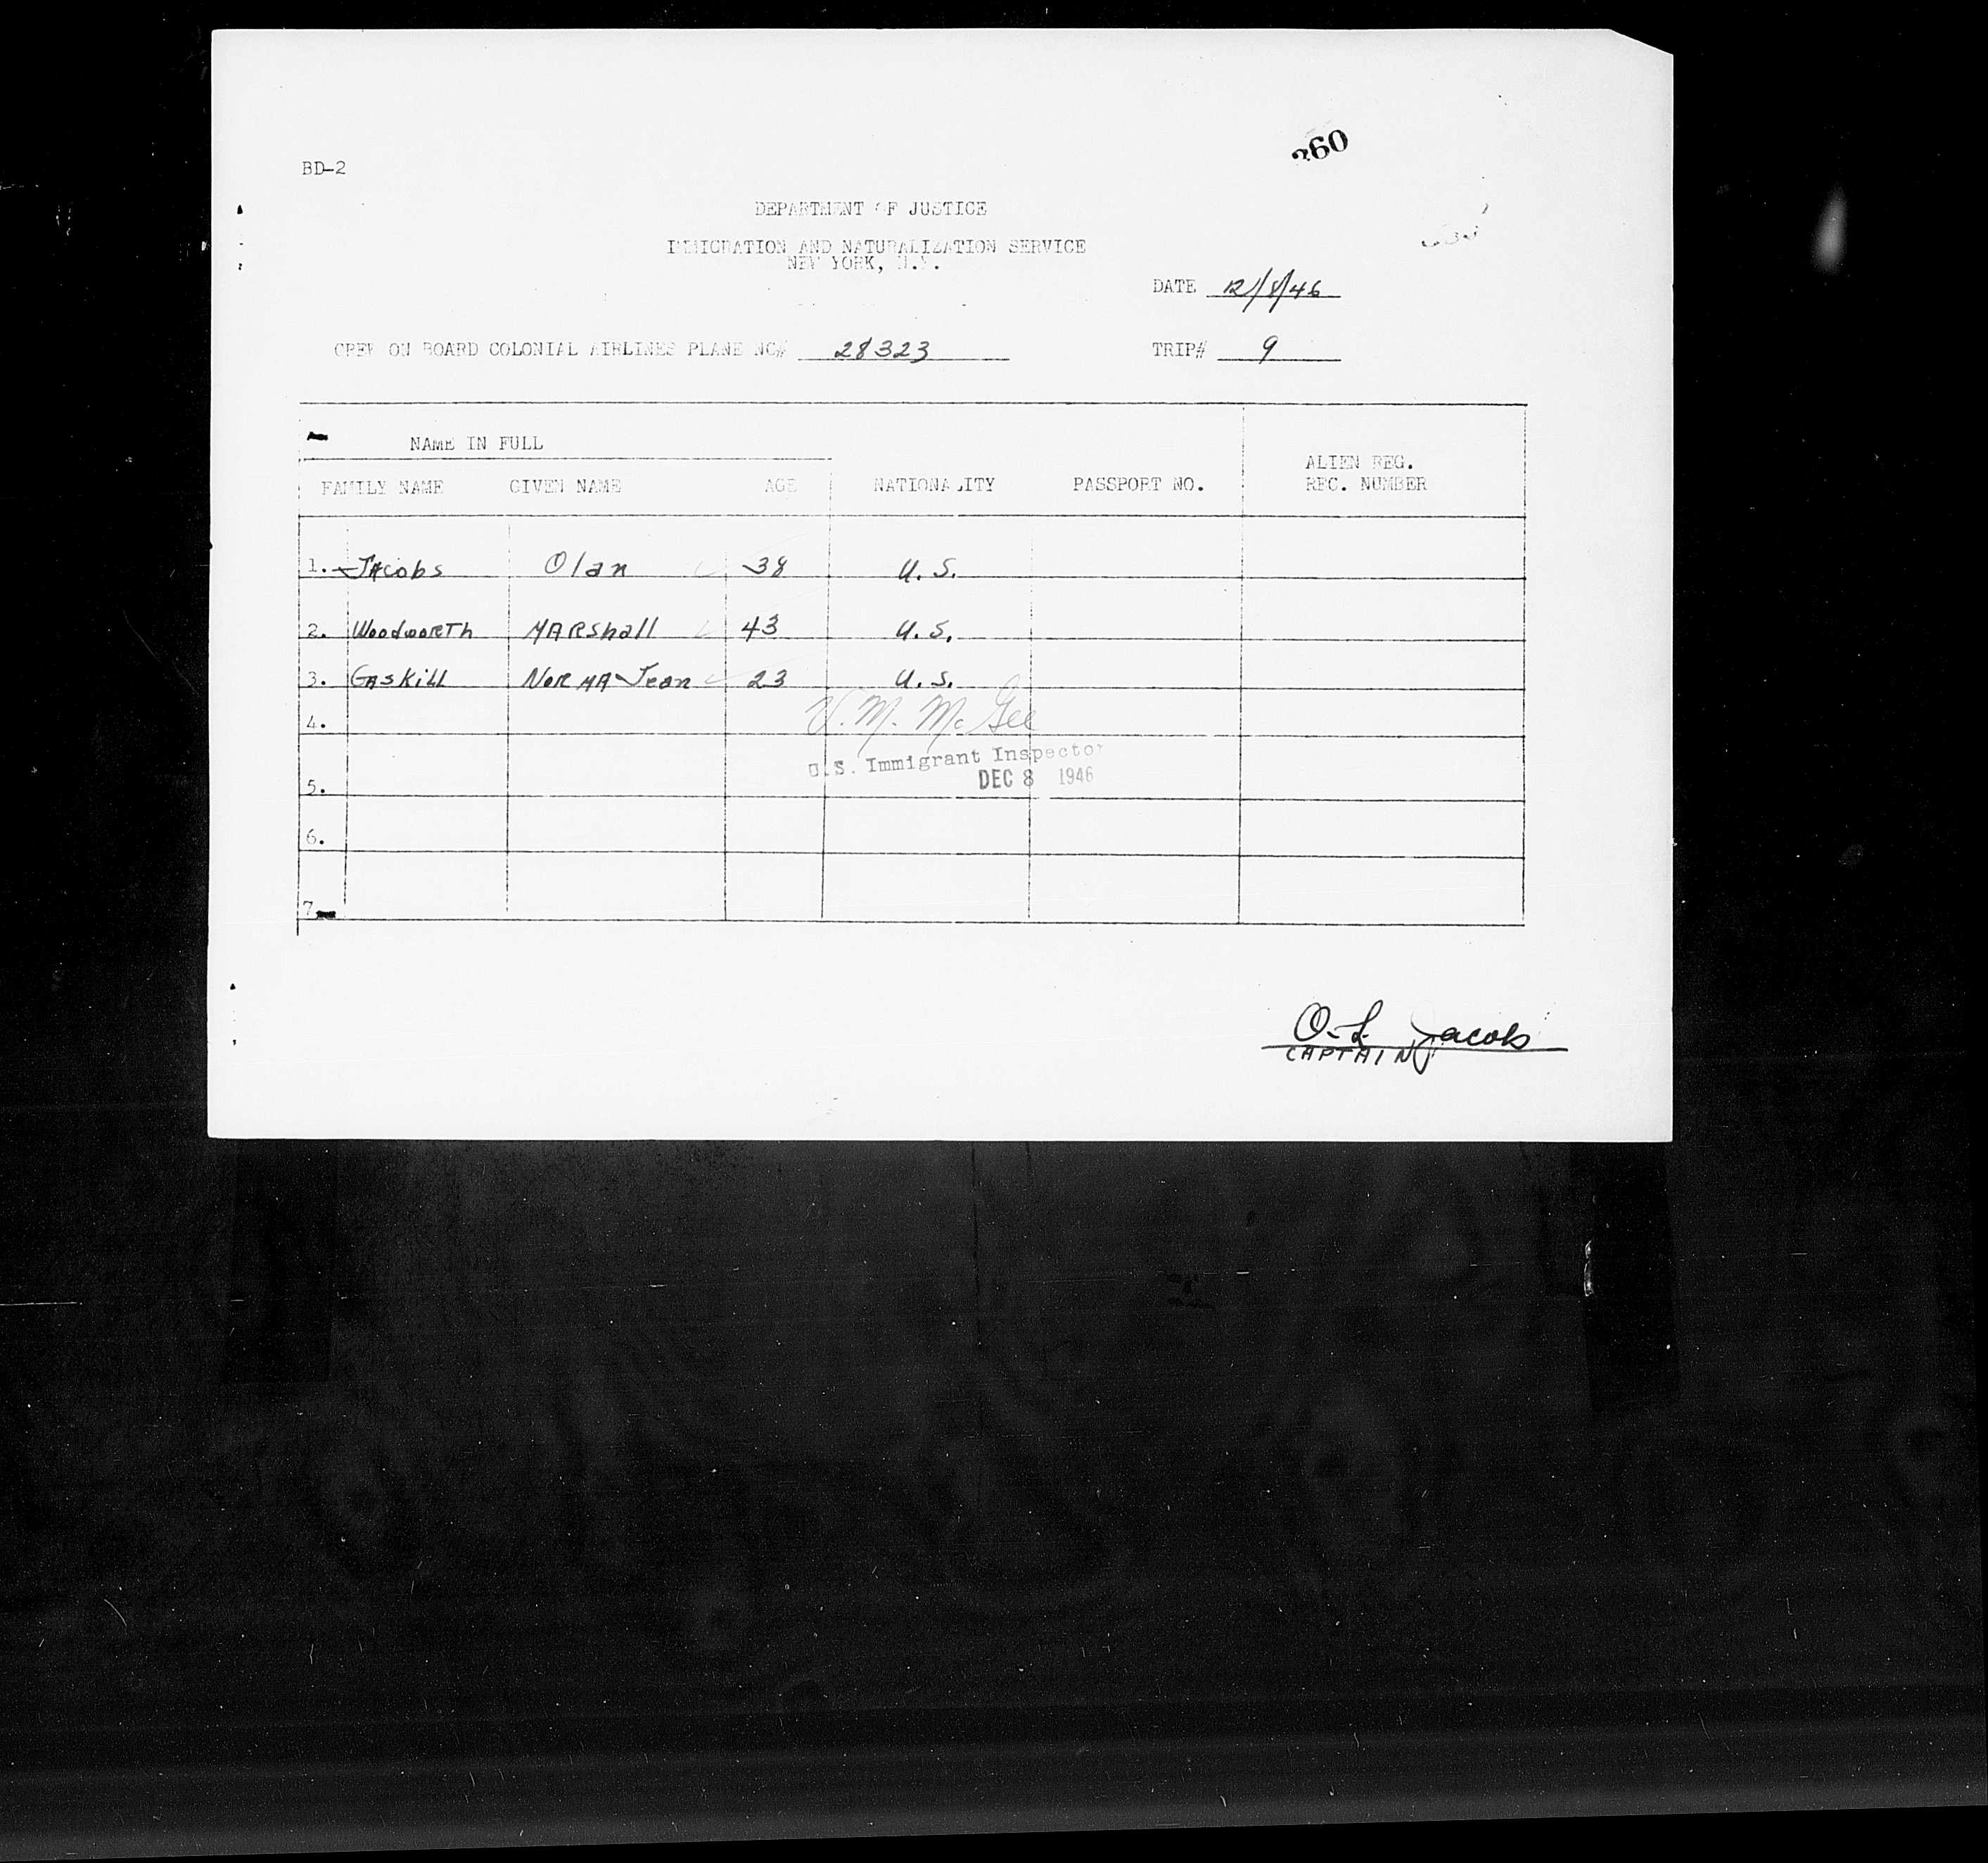 BD-2
DEPARTMENT OF JUSTICE
IMMIGRATION AND NATURALIZATION SERVICE
NEW YORK, N.Y.
DATE 12/8/46
CREW ON BOARD COLONIAL AIRLINES PLANE NC# 28323 TRIP# 9
NAME IN FULL
ALIEN REG.
FAMILY NAME GIVEN NAME AGE NATIONALITY PASSPORT NO. REC. NUMBER
1. Jacobs Olan 38 U.S.
2. Woodworth MARShall 43 U.S.
3. GAskill NorMA Jean 23 U.S.
V. M. McGee
4.
U.S. Immigrant Inspector
DEC 8 1946
5.
6.
7.
O.L. Jacobs
CAPTAIN